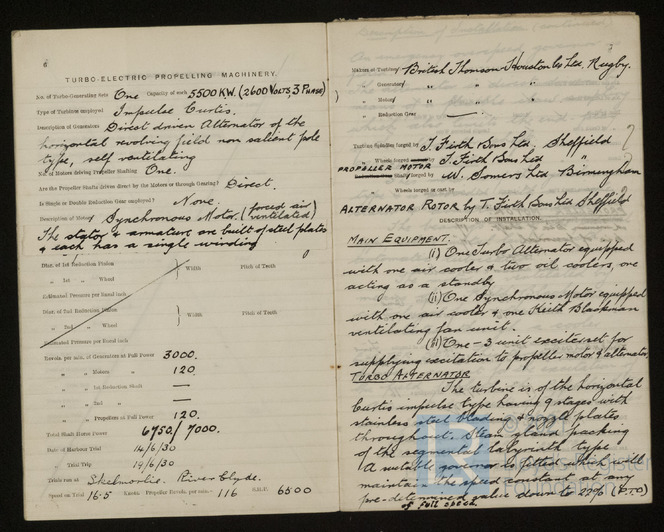 6
TURBO-ELECTRIC PROPELLING MACHINERY.
No. of Turbo-Generating Sets One Capacity of each 5500 KW. (2600 VOLTS, 3 PHASE)
Type of Turbines employed Impulse Curtis.
Description of Generators Direct driven Alternator of the
horizontal revolving field non salient pole
type, self ventilating
No. of Motors driving Propelling Shafting One.
Are the Propeller Shafts driven direct by the Motors or through Gearing? Direct.
Is Single or Double Reduction Gear employed? None.
Description of Motors Synchronous Motor. (forced air ventilated)
The stator & armature are built of steel plates
& each has a single winding
Diar. of 1st Reduction Pinion } Width Pitch of Teeth
" 1st " Wheel
Estimated Pressure per lineal inch
Diar. of 2nd Reduction Pinion } Width Pitch of Teeth
" 2nd " Wheel
Estimated Pressure per lineal inch
Revols. per min. of Generators at Full Power 3000.
" " Motors " 120.
" " 1st Reduction Shaft —
" " 2nd " " —
" " Propellers at Full Power 120.
Total Shaft Horse Power 6750/7000.
Date of Harbour Trial 14/6/30
" Trial Trip 19/6/30
Trials run at Skelmorlie. River Clyde.
Speed on Trial 16.5 Knots. Propeller Revols. per min. 116 S.H.P. 6500
7
Makers of Turbines British Thomson Houston Co Ltd, Rugby.
" Generators " " "
" Motors " " "
" Reduction Gear —
Turbine Spindles forged by T. Firth & Sons Ltd, Sheffield
" Wheels forged by T. Firth & Sons Ltd "
PROPELLER MOTOR
Reduction Gear Shafts forged by W. Somers Ltd Birmingham
" Wheels forged or cast by
ALTERNATOR ROTOR by T. Firth & Sons Ltd Sheffield
DESCRIPTION OF INSTALLATION.
MAIN EQUIPMENT.
(i) One Turbo Alternator equipped
with one air cooler & two oil coolers, one
acting as a standby
(ii) One Synchronous Motor equipped
with one air cooler & one Keith Blackman
ventilating fan unit.
(iii) One - 3 unit exciter set for
supplying excitation to propeller motor & alternator.
TURBO ALTERNATOR
The turbine is of the horizontal
Curtis impulse type having 9 stages with
stainless steel blading & nozzle plates
throughout. Steam gland packing
of the segmental labyrinth type.
A suitable governor is fitted which will
maintain the speed constant at any
pre-determined value down to 22% (P.T.O)
of full speed.